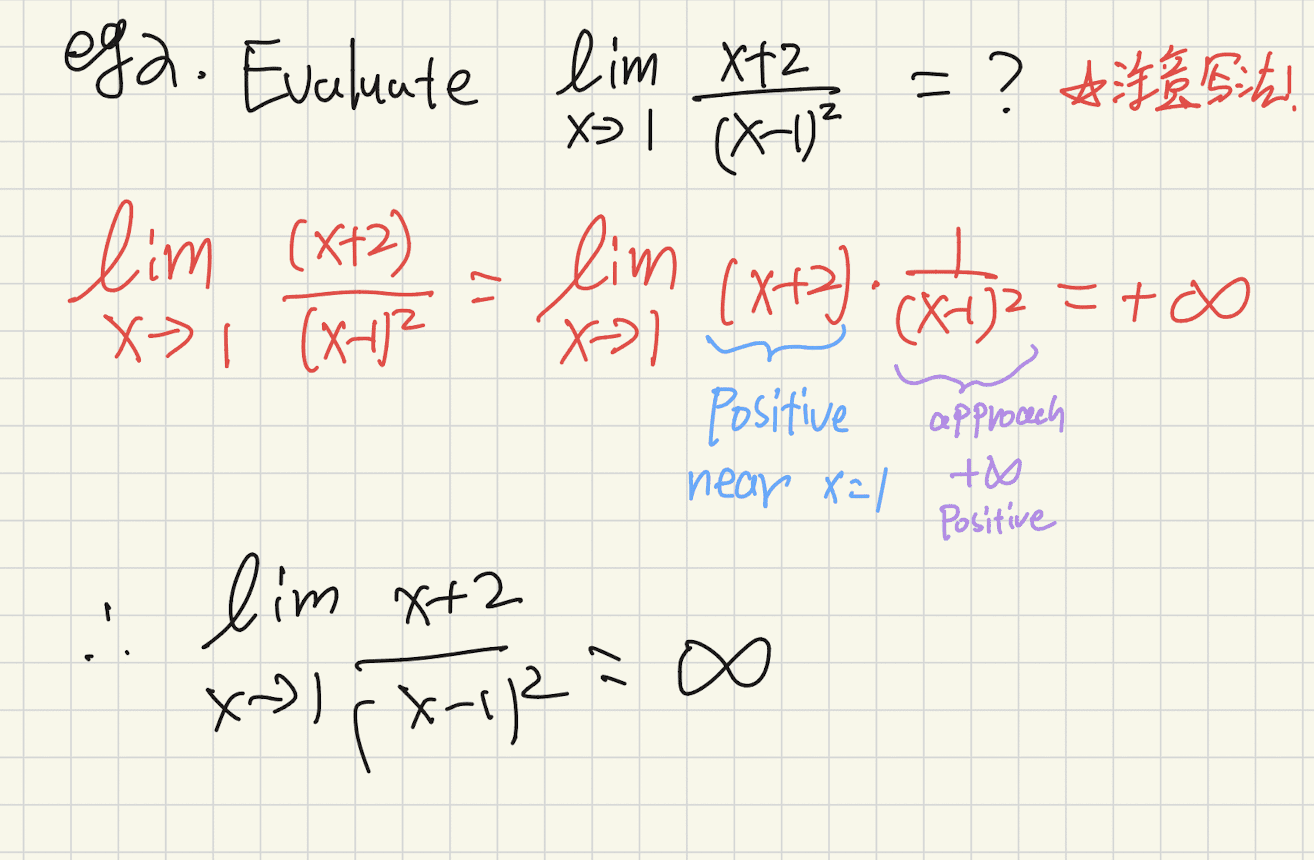 eg2. Evaluate lim x→1 (x+2)/(x-1)² = ? ☆注意写法!
lim x→1 (x+2)/(x-1)² = lim x→1 (x+2)·1/(x-1)² = +∞
Positive approach
near x=1 +∞
Positive
∴ lim x→1 x+2/(x-1)² = ∞